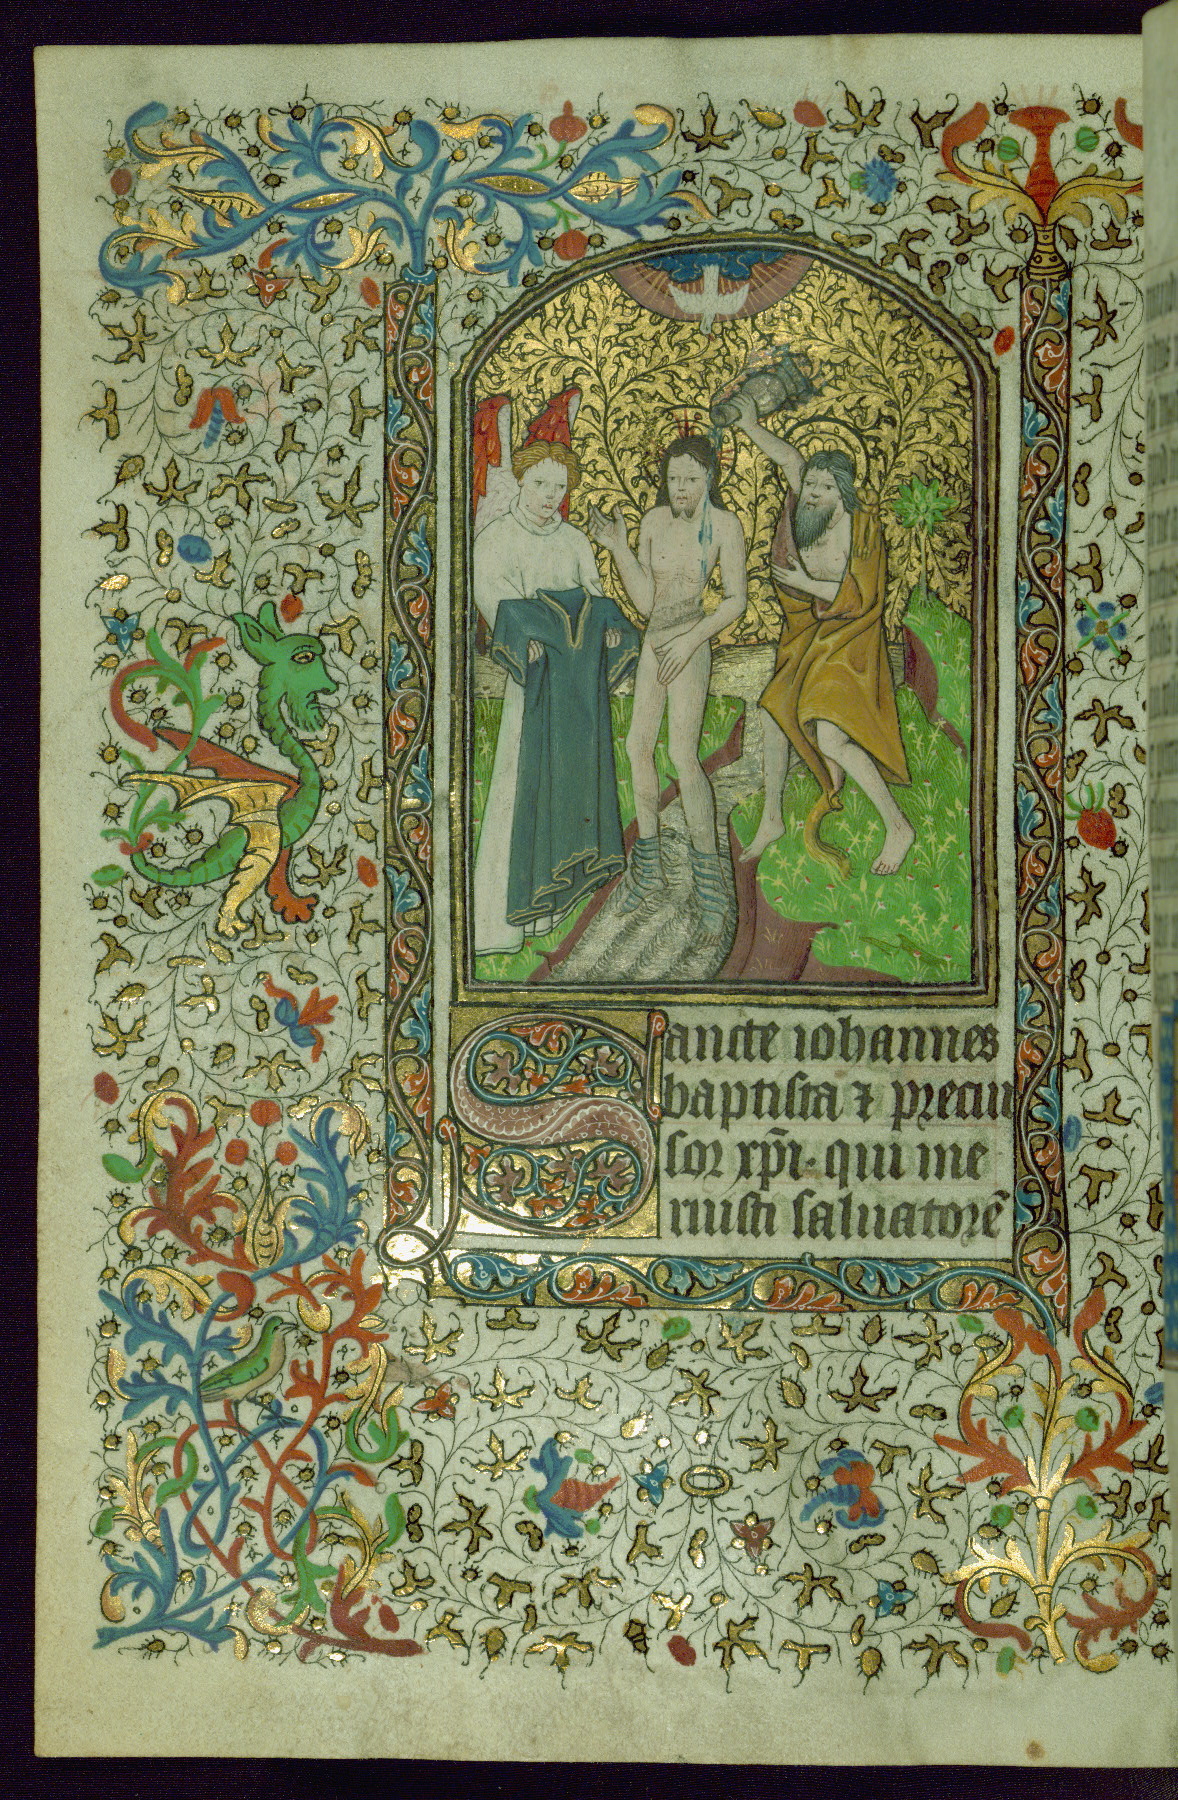 Sancte iohannes
baptista ⁊ precur
sor xp̄i· qui me
ruisti saluatorē